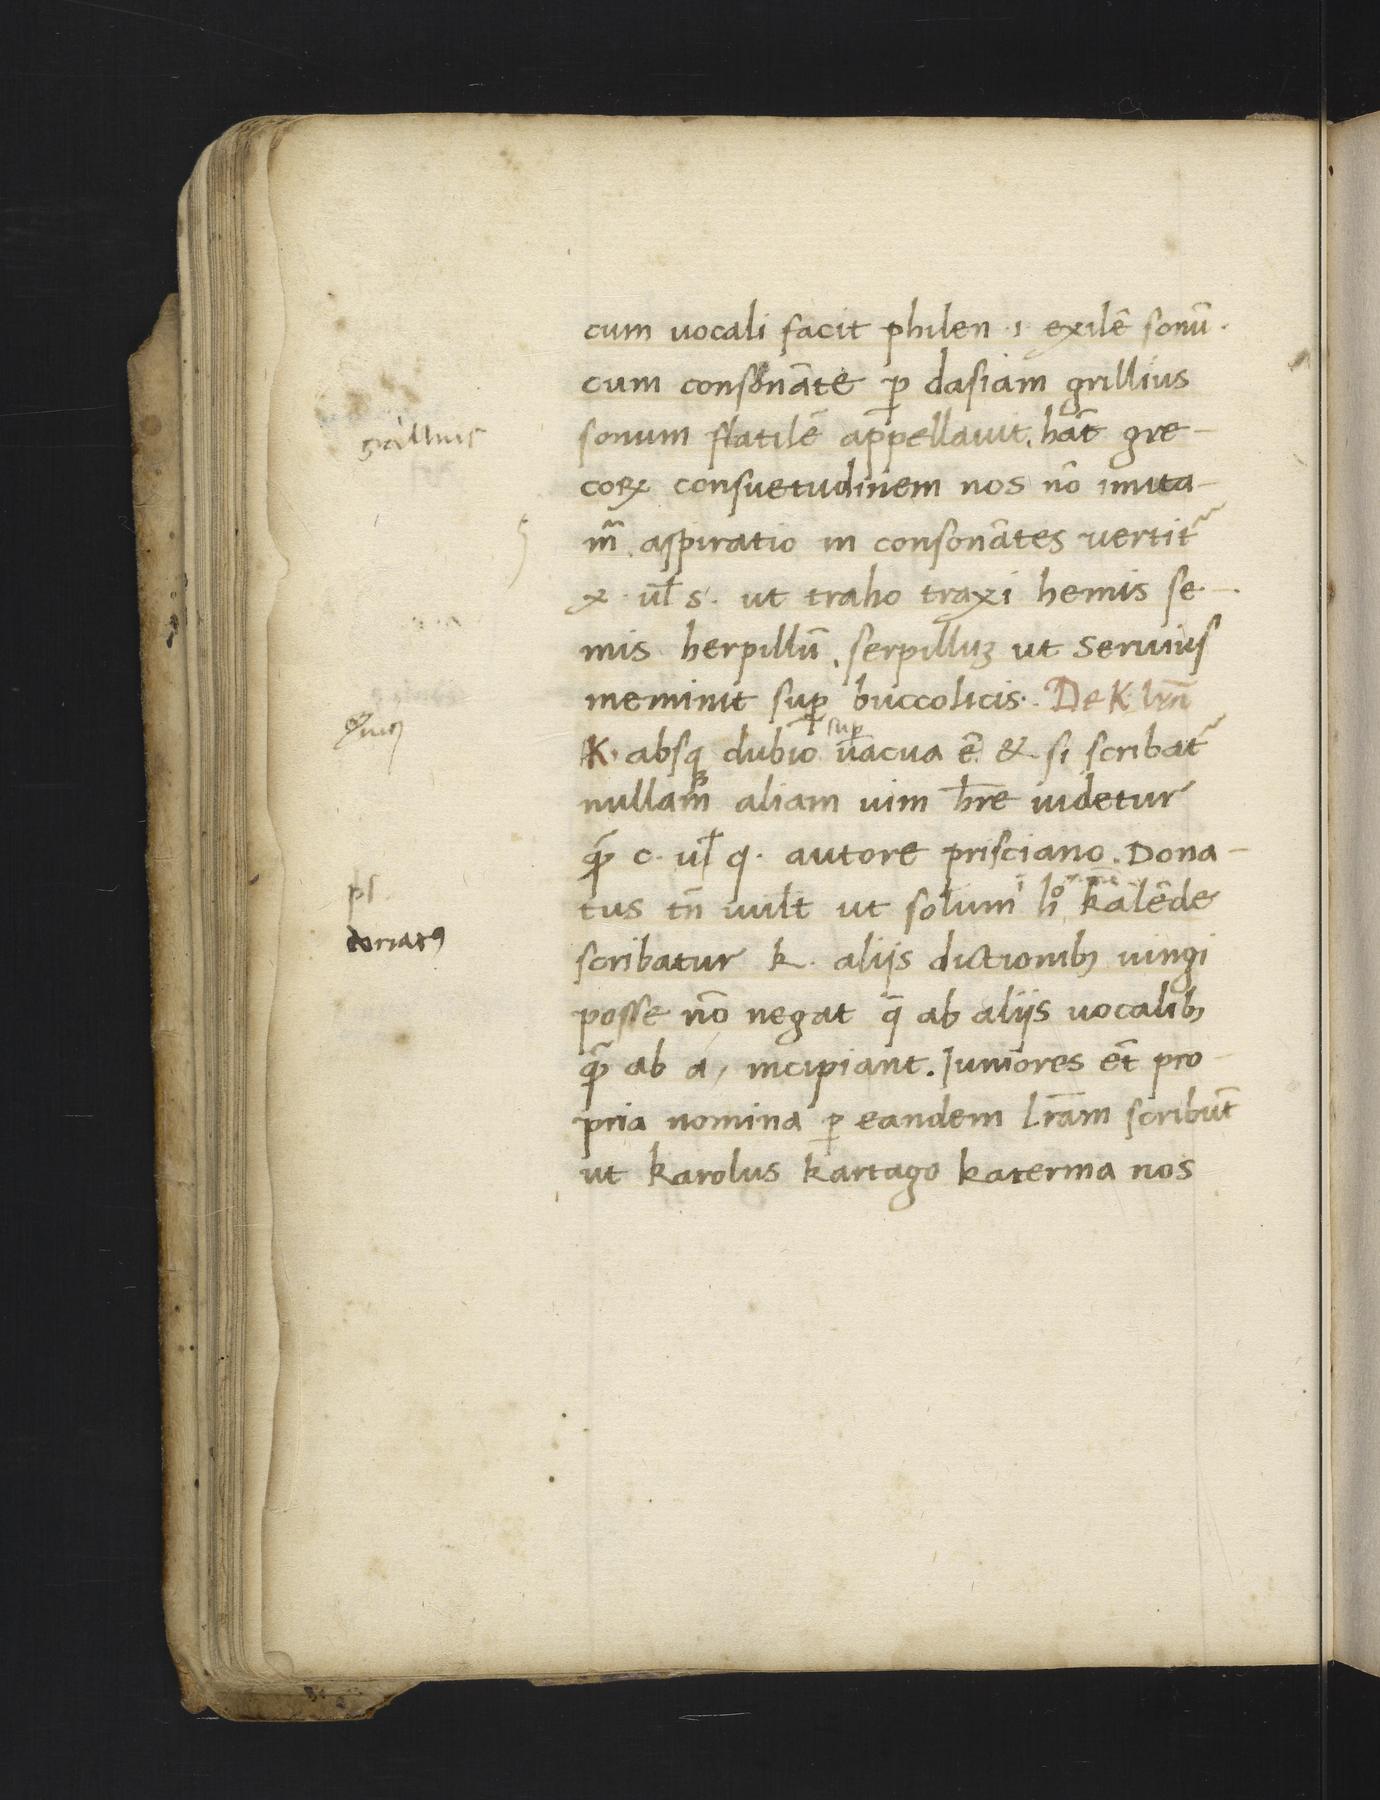 cum uocali facit philen .i. exilē sonū.
cum consonāte ꝑ dasiam grillius
grillius
sonum flatilē appellauit. hāc gre-
coꝝ consuetudinem nos nō imita-
mr̃. aspiratio in consonātes vertit᷑
x ul̄ s. ut traho traxi hemis se-
mis herpillū. serpilluꝫ ut Seruius
meminit suꝑ buccolicis. De K lr̄a
K. absqꝫ dubio suꝑuacua ē. & si scribat᷑
nullam aliam uim hr̄e uidetur
qꝫ̄ c. ul̄ q. autore prisciano. Dona-
ps
tus tn̄ uult ut solum ī hͦ noīe kalēde
donatꝰ
scribatur k. aliis dictionibꝫ iungi
posse nō negat q̄ ab aliis uocalibꝫ
qꝫ̄ ab a, incipiant. Iuniores et̄ pro-
pria nomina ꝑ eandem lr̄am scribūt
ut karolus kartago katerina nos